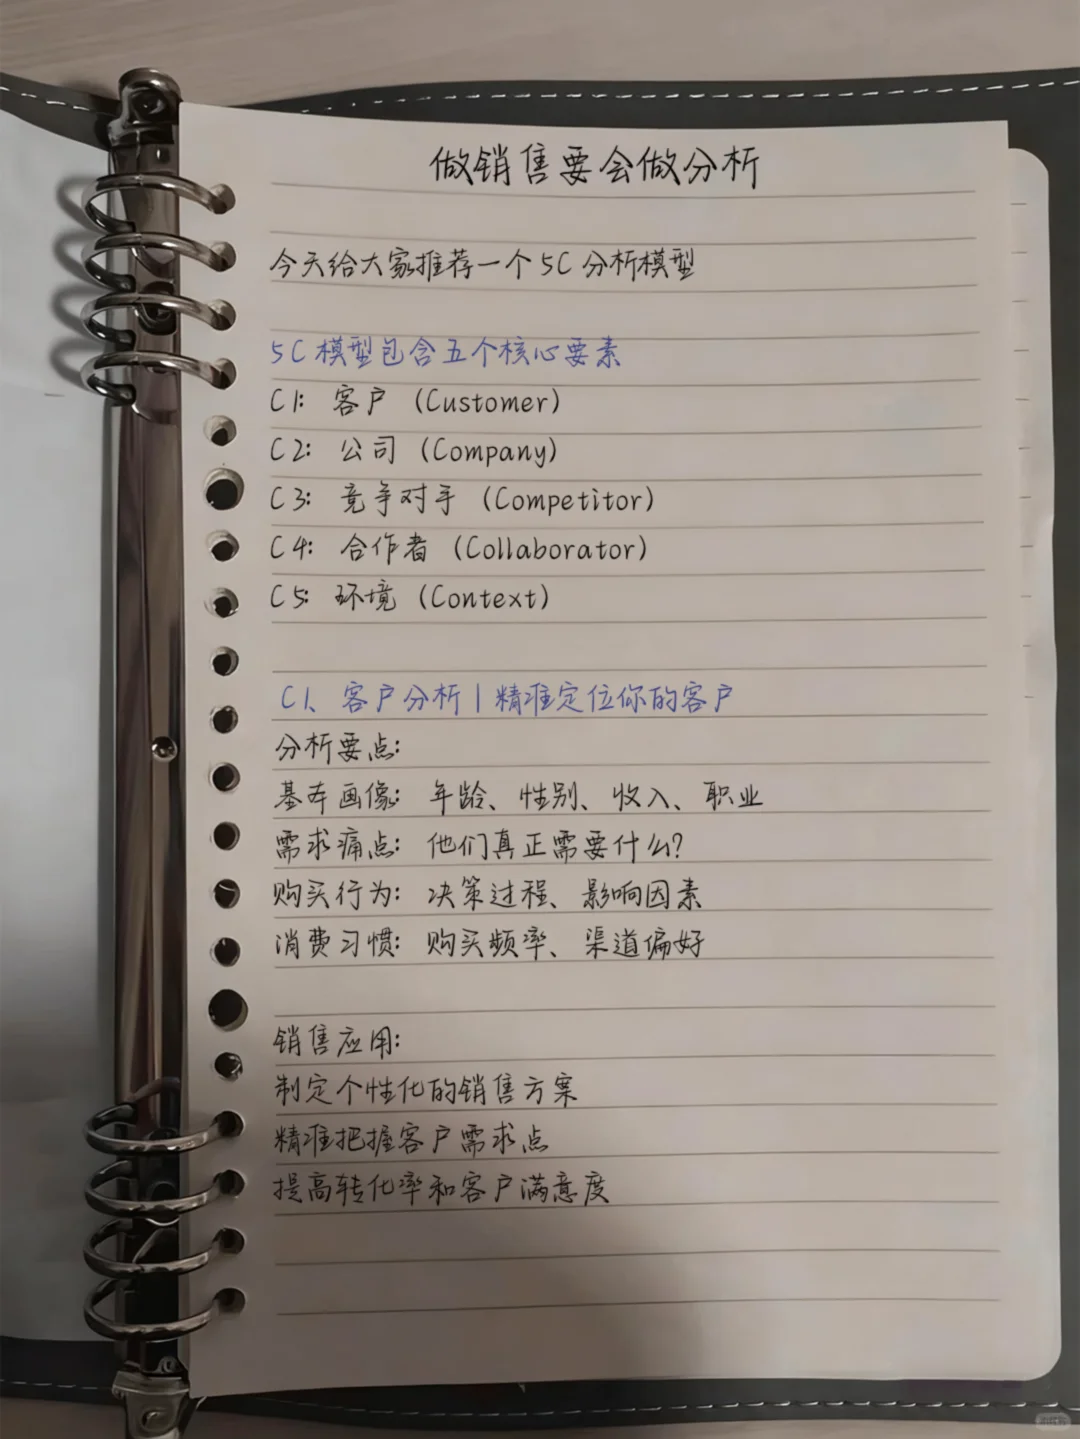 做销售要会做分析
今天给大家推荐一个5C分析模型
5C模型包含五个核心要素
C1: 客户 (Customer)
C2: 公司 (Company)
C3: 竞争对手 (Competitor)
C4: 合作者 (Collaborator)
C5: 环境 (Context)
C1、客户分析|精准定位你的客户
分析要点:
基本画像: 年龄、性别、收入、职业
需求痛点: 他们真正需要什么?
购买行为: 决策过程、影响因素
消费习惯: 购买频率、渠道偏好
销售应用:
制定个性化的销售方案
精准把握客户需求点
提高转化率和客户满意度